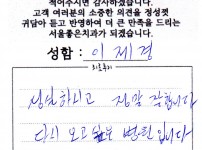 적어주시면 감사하겠습니다.
고객 여러분의 소중한 의견을 정성껏
귀담아 듣고 반영하여 더 큰 만족을 드리는
서울좋은치과가 되겠습니다.
성함 : 이제경
친절하시고 정말 착합니다
다시 오고 싶은 병원입니다